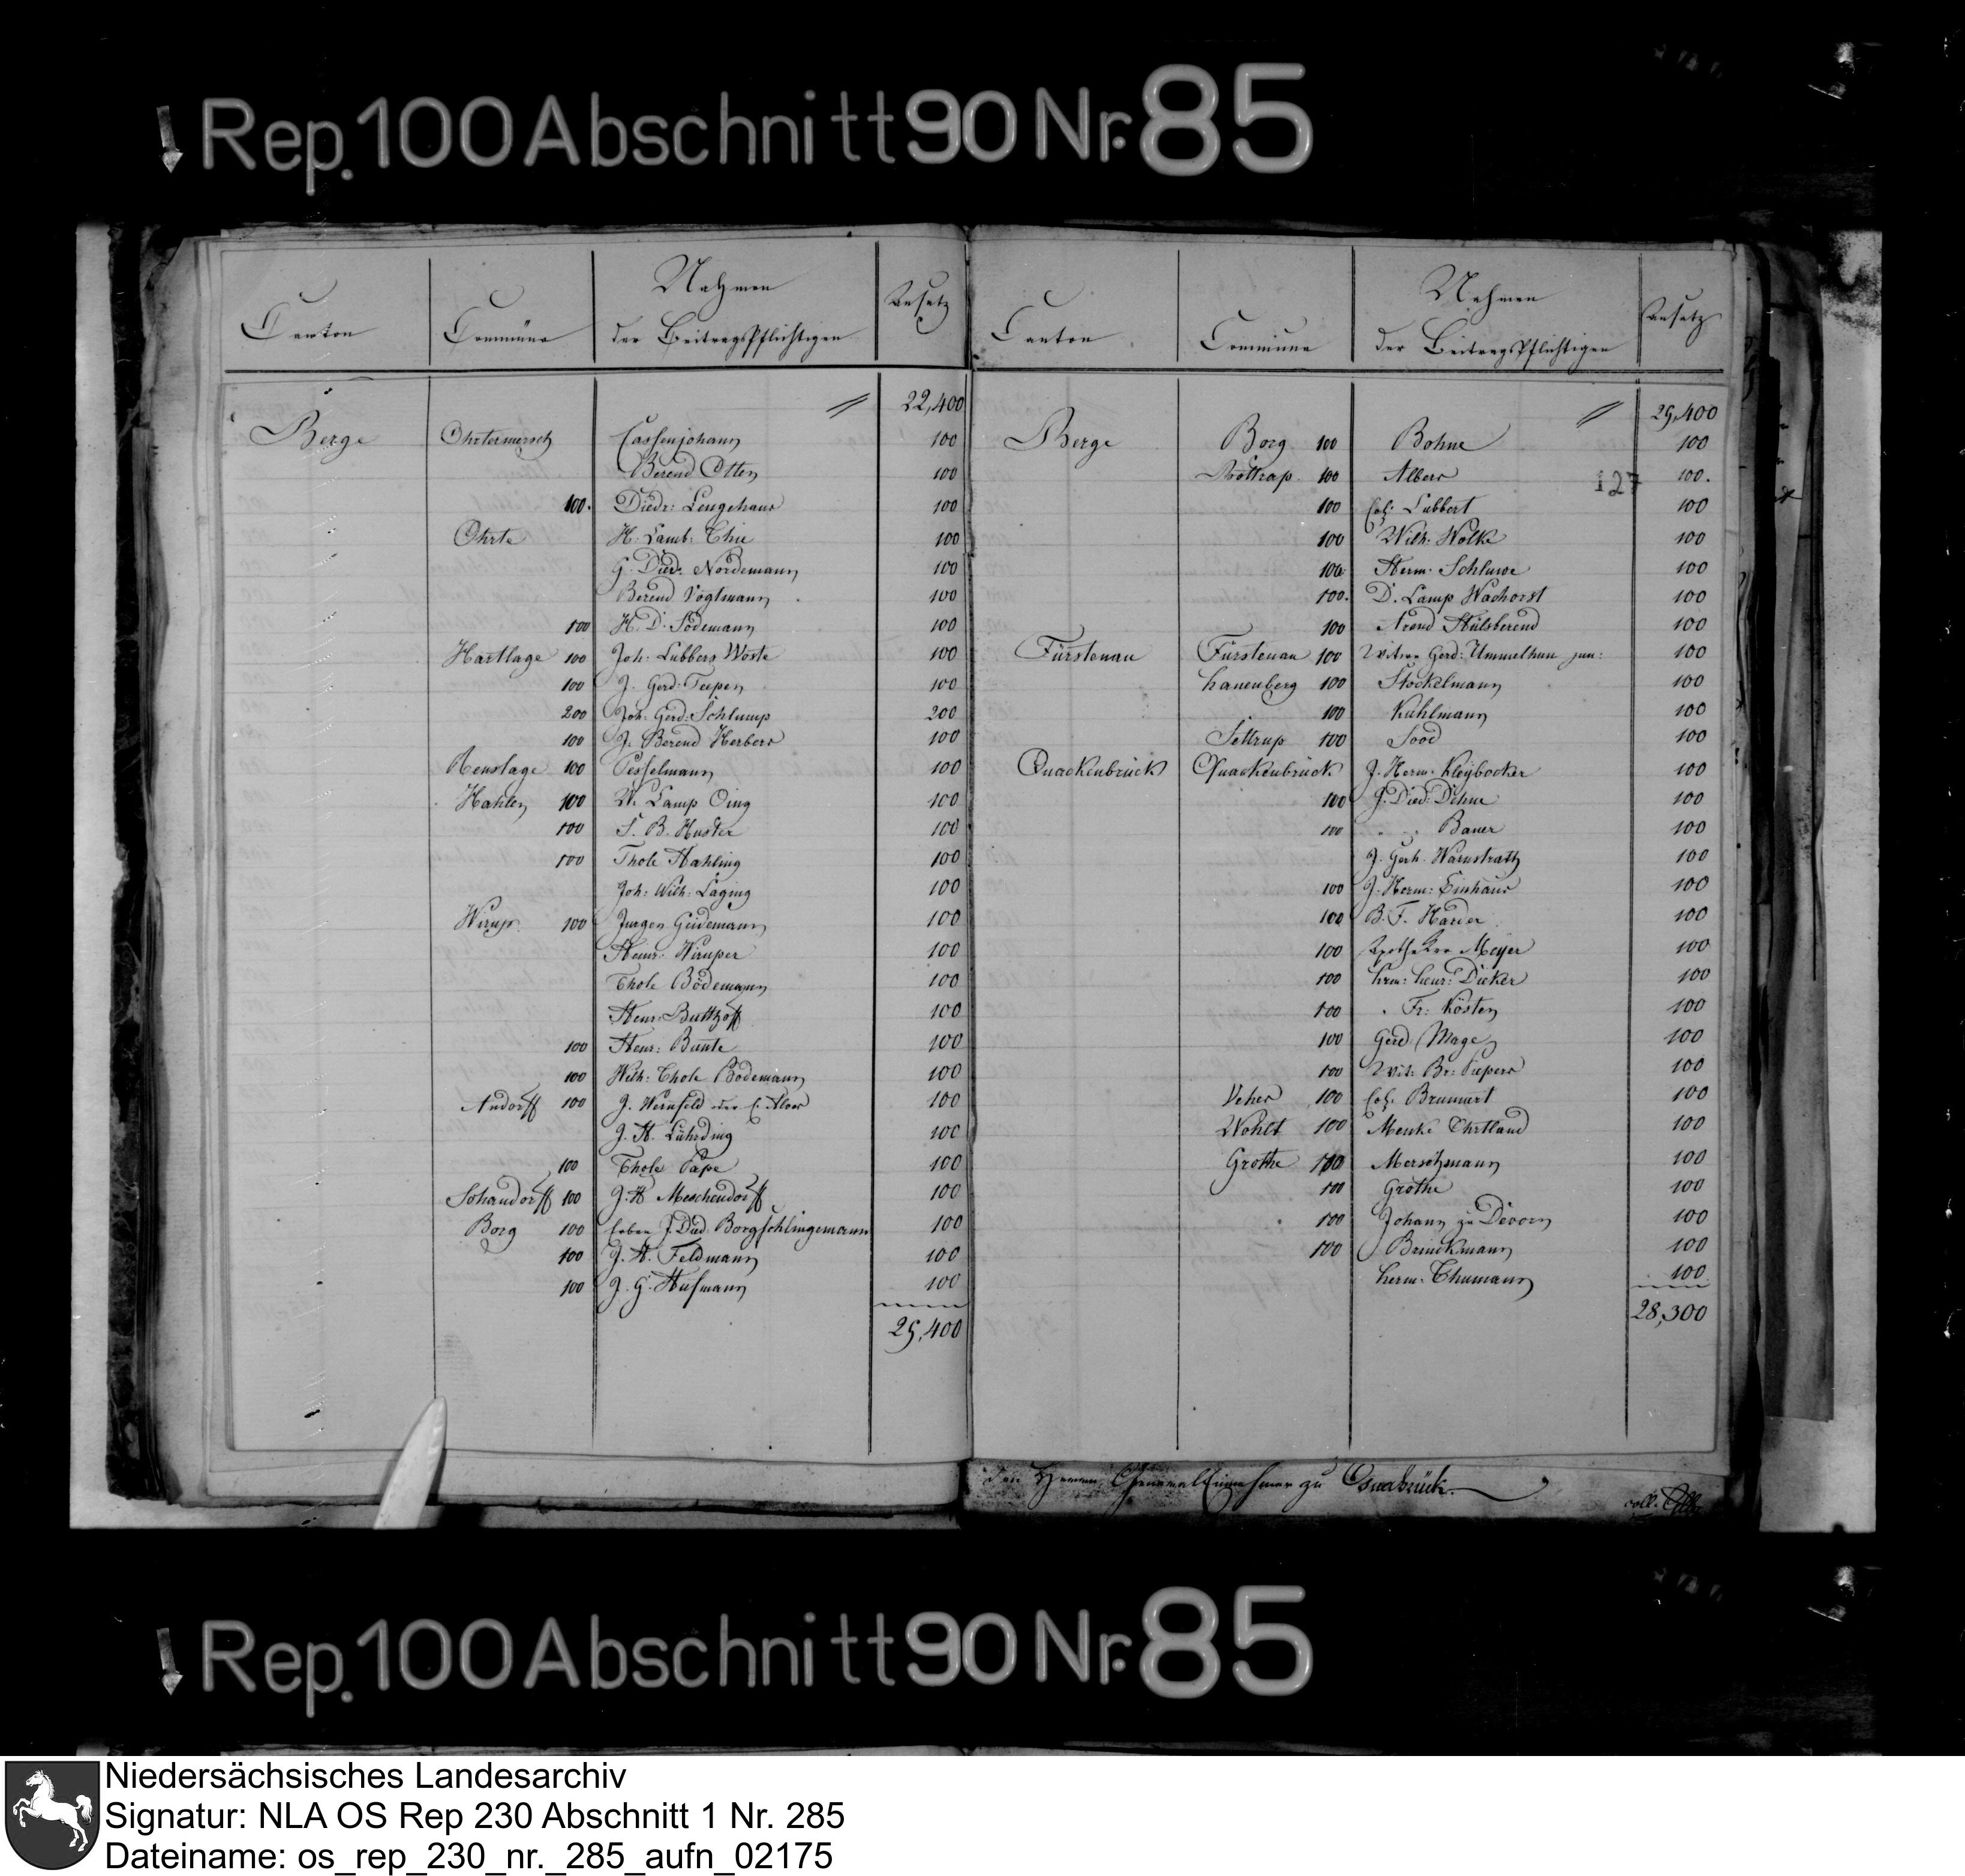 Rep. 100 Abschnitt 90 Nr. 85
Canton Commüne Nahmen der Beitragspflichtigen Ansatz
22,400
Berge Ohrtermersch Cassenjohann 100
Berend Otten 100
100. Diedr: Lengehaus 100
Ohrte H. Lamb: Thie 100
G. Died: Nordemann 100
Berend Vogtmann 100
100 H. D. Södemann 100
Hartlage 100 Joh: Lubbers Woste 100
100 J. Gerd: Teepen 100
200 Joh: Gerd: Schlump 200
100 J. Berend Herbers 100
Renslage 100 Pesselmann 100
Hahlen 100 W. Lamp Oing 100
100 S. B. Huster 100
100 Thole Hahling 100
Joh: Wilh: Laging 100
Wirup 100 Jurgen Geidemann 100
Henr: Wiruper 100
Thole Bödemann 100
Henr: Butthoff 100
100 Henr: Bunte 100
100 Wilh: Thole Bödemann 100
Andorff 100 J. Wernfeld oder C. Alvos 100
J. H. Lührding 100
100 Thole Pape 100
Schandorff 100 J. H Meschendorff 100
Borg 100 Erben J. Died: Borgschlingemann 100
100 J. H. Feldmann 100
100 J. G. Hüsmann 100
25,400
Canton Commüne Nahmen der Beitragspflichtigen Ansatz
25,400
Berge Borg 100 Bohne 100
127
100 Albers 100.
100 Col: Lubbert 100
100 Wilh: Wolke 100
100 Herm: Schluwe 100
100. D. Lamp Wachorst 100
100 Arend Hülsberend 100
Fürstenau Fürstenau 100 Witwe Gerd: Ummelhun jun: 100
Lanenberg 100 Stockelmann 100
100 Kuhlmann 100
Settrup 100 Sood 100
Quackenbrück Quackenbrück J. Herm: Kleybocker 100
100 J. Died: Dehne 100
100 " " Baner 100
J. Gerh. Warnstrath 100
100 J. Herm: Einhaus 100
100 B. F. Harder 100
100 Apotheker Meyer 100
100 Herm: Henr: Dieker 100
100 Fr: Kösten 100
100 Gerd Mage 100
100 Wit: Br: Piepers 100
Vehs 100 Col: Brummert 100
Wohlt 100 Menke Ehrtland 100
Grothe 100 Merschmann 100
100 Grothe 100
100 Johann zu Devorn 100
100 Brinckmann 100
Herm: Thumann 100
28,300
den Herren GeneralEinnehmer zu Osnabrück.
coll.
Rep. 100 Abschnitt 90 Nr. 85
Niedersächsisches Landesarchiv
Signatur: NLA OS Rep 230 Abschnitt 1 Nr. 285
Dateiname: os_rep_230_nr._285_aufn_02175